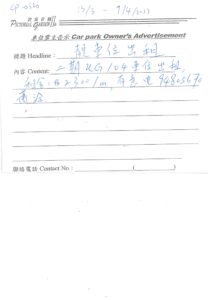 CP-0360 15/3 - 9/4/2011
PICTORIAL GARDEN
車位業主告示 Car park Owner's Advertisement
標題 Headline: 靚車位出租
內容 Content: 二期 UG/04 車位出租,
租金: $2300/m 有意電 94805670
商洽
聯絡電話 Contact No.: ( )